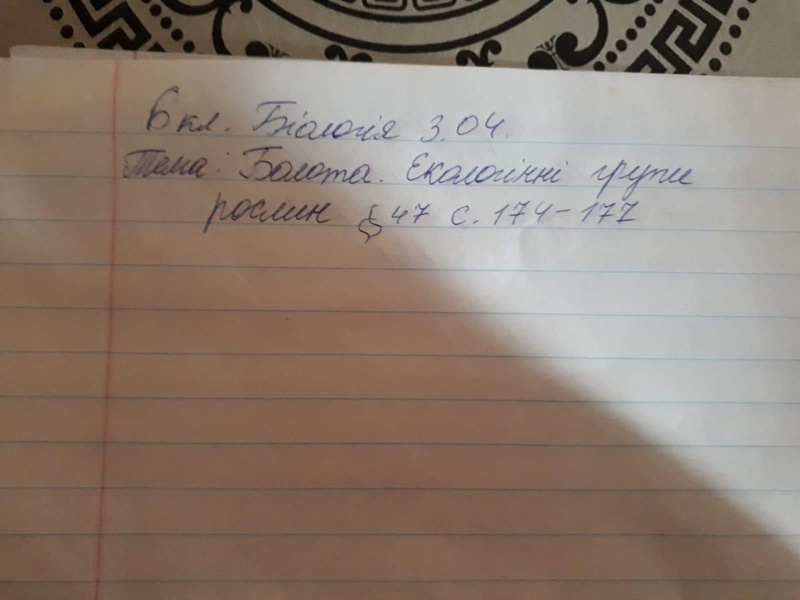 6 кл. Біологія 3.04.
Тема: Болота. Екологічні групи
рослин § 47 с. 174-177